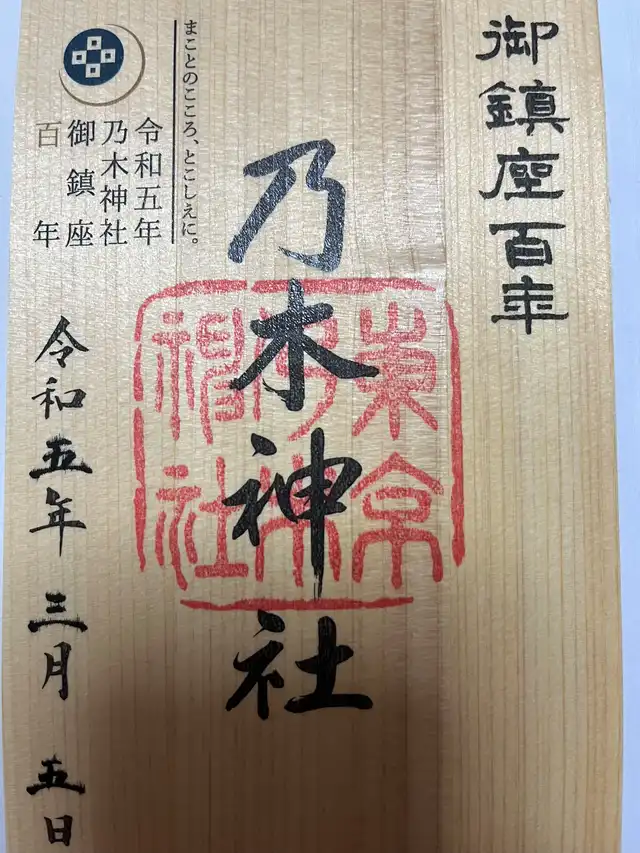 御鎮座百年
乃木神社
東京
乃木
神社
まことのこころ、とこしえに。
令和五年
乃木神社
御鎮座
百年
令和五年三月五日